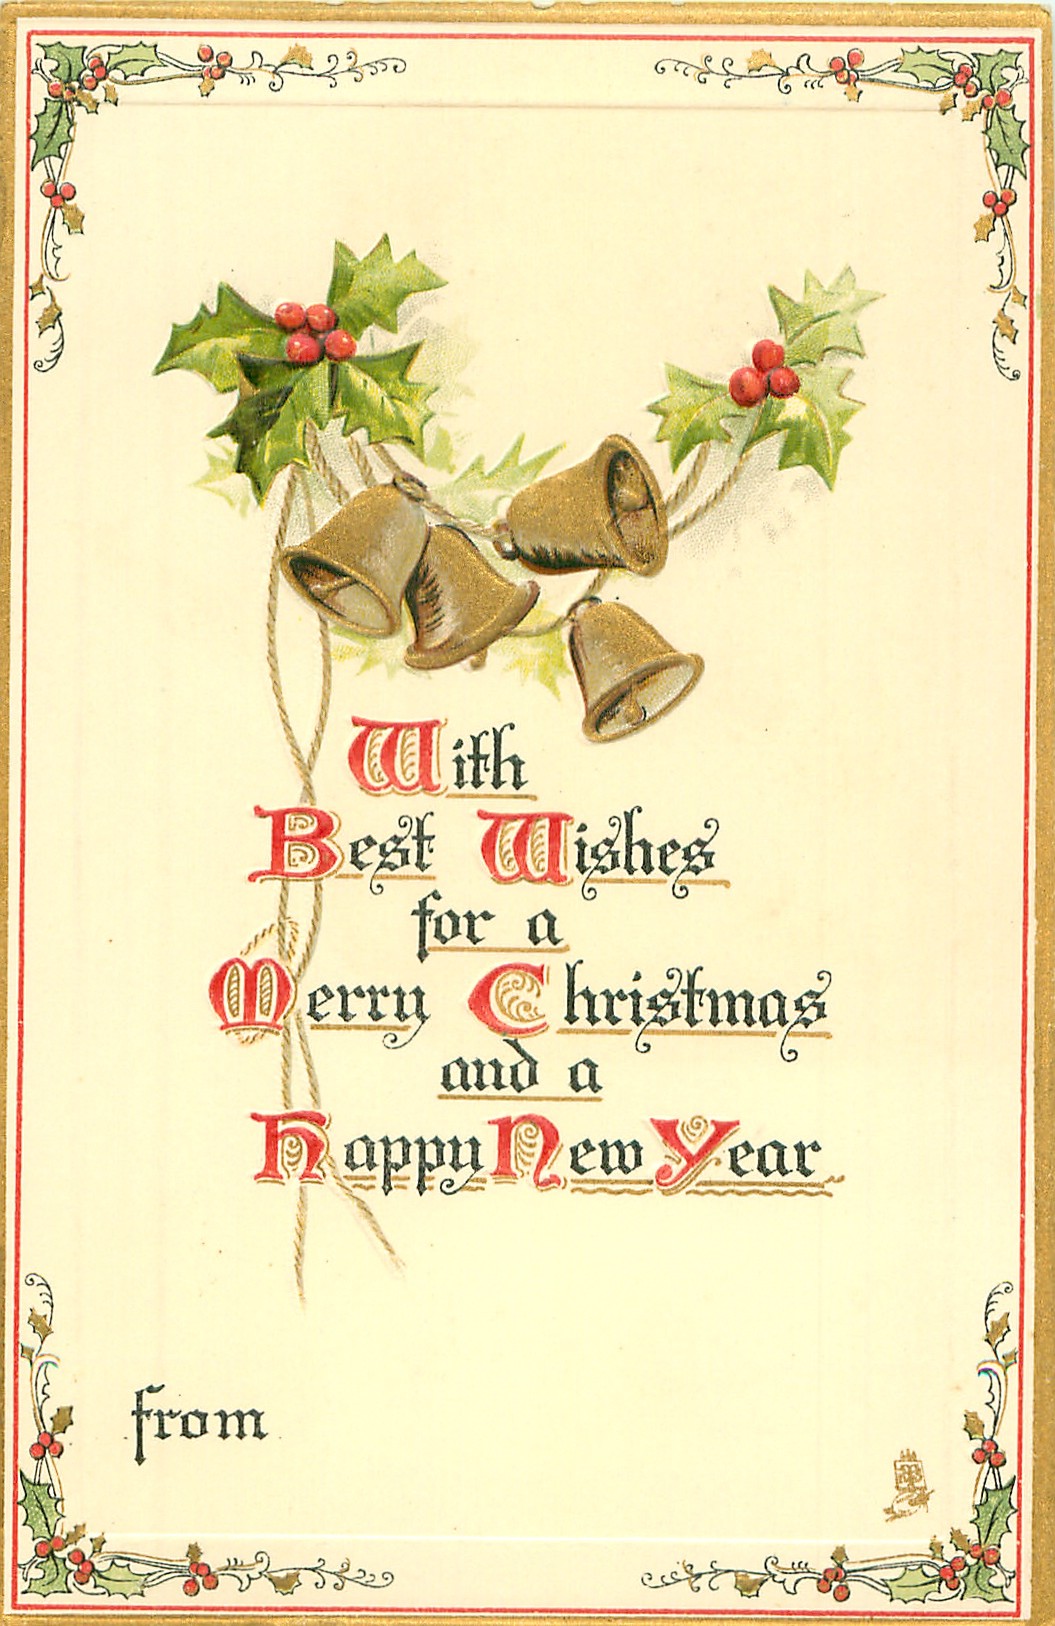 With
Best Wishes
for a
Merry Christmas
and a
Happy New Year
from